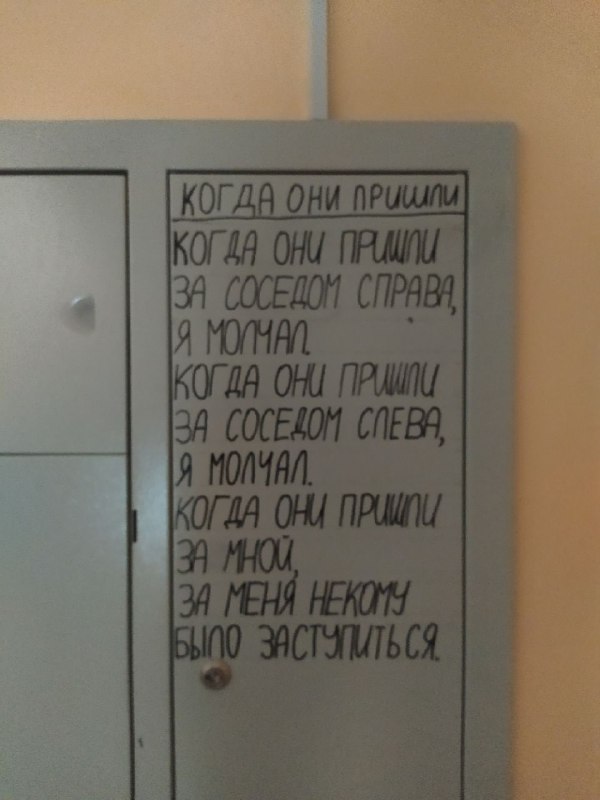 КОГДА ОНИ ПРИШЛИ
КОГДА ОНИ ПРИШЛИ
ЗА СОСЕДОМ СПРАВА,
Я МОЛЧАЛ.
КОГДА ОНИ ПРИШЛИ
ЗА СОСЕДОМ СЛЕВА,
Я МОЛЧАЛ.
КОГДА ОНИ ПРИШЛИ
ЗА МНОЙ,
ЗА МЕНЯ НЕКОМУ
БЫЛО ЗАСТУПИТЬСЯ.